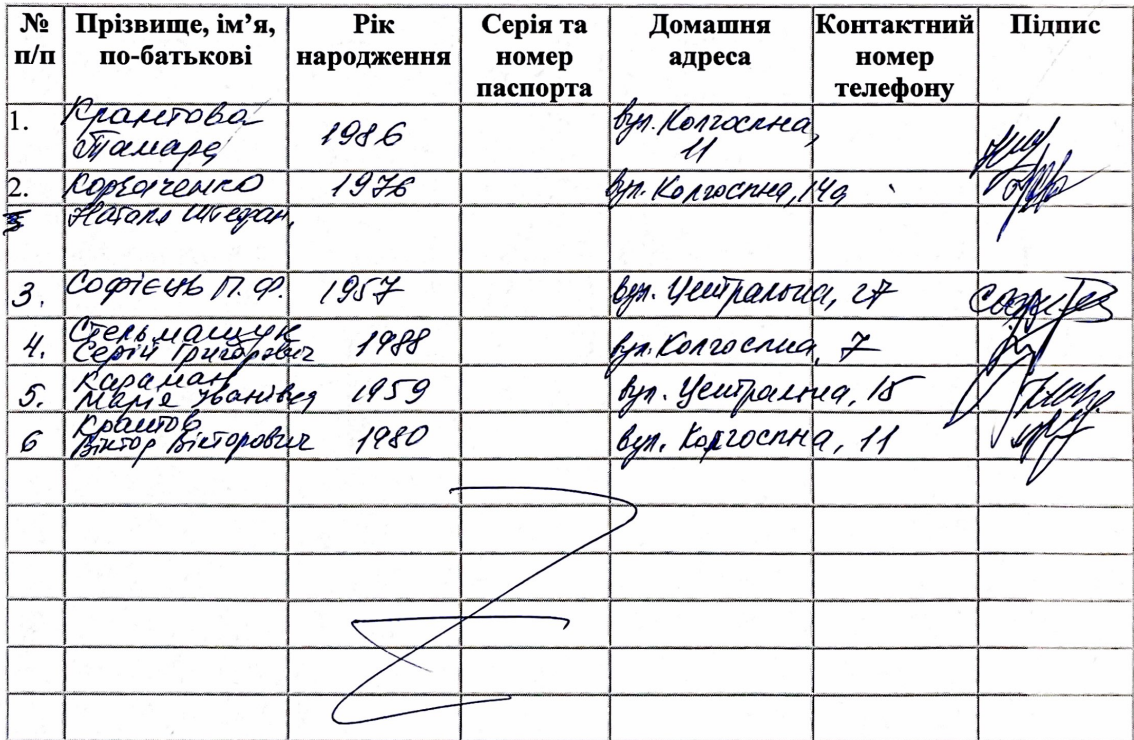 № п/п Прізвище, ім’я, по-батькові Рік народження Серія та номер паспорта Домашня адреса Контактний номер телефону Підпис
1. Крантова Тамара 1986 вул. Колгоспна, 11
2. 1976 вул. Колгоспна, 14а
Наталя Штефан.
3. Софієць П. Ф. 1957 вул. Центральна, 27
4. Стельмащук Сергій Григорович 1988 вул. Колгоспна, 7
5. Караман Марія Іванівна 1959 вул. Центральна, 15
6 Крантов Віктор Вікторович 1980 вул. Колгоспна, 11